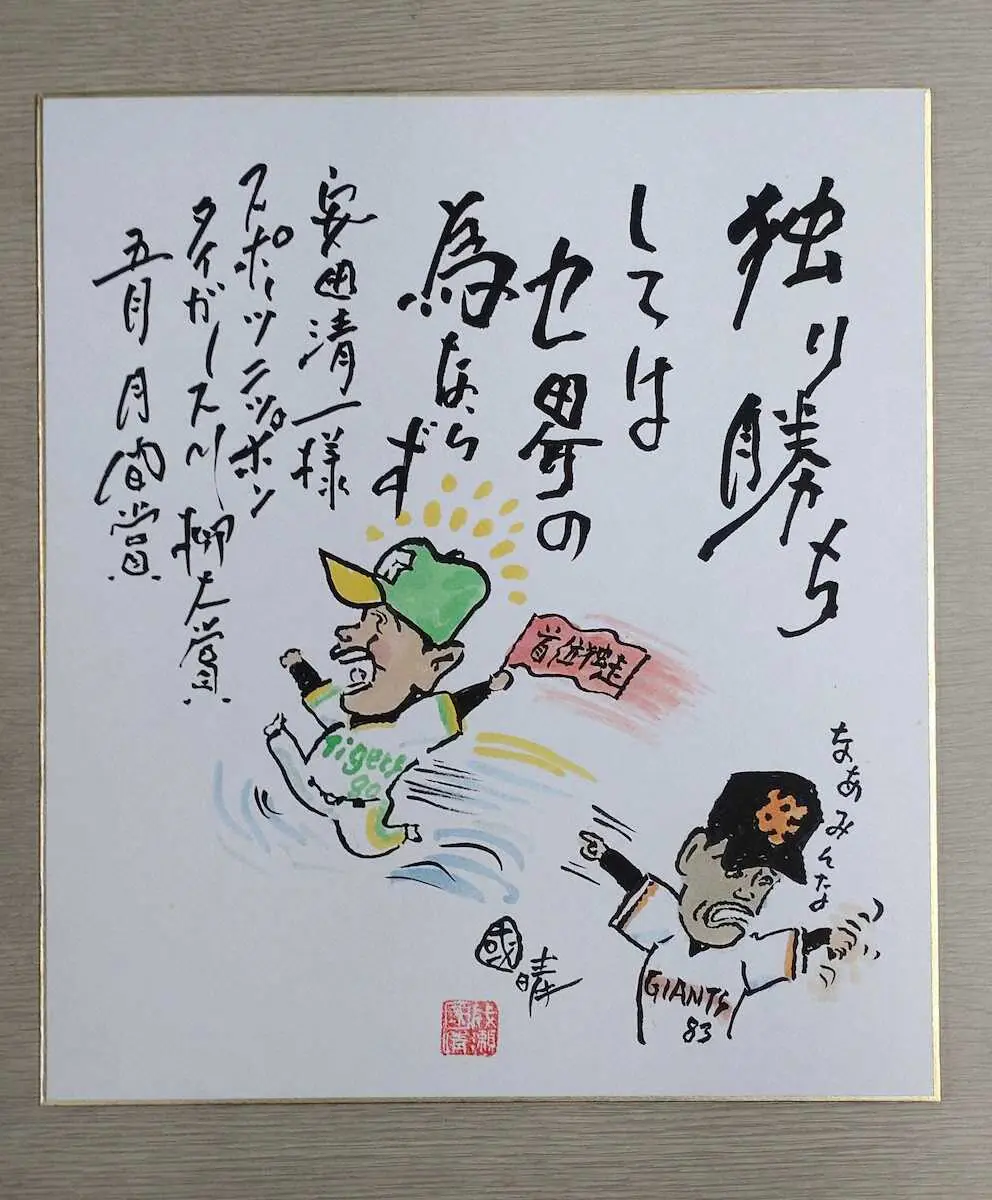 独り勝ち
しては
セ界の
為ならず
安田清一様
スポーツニッポン
タイガース川柳大賞
五月 月間賞
首位独走
Tigers
80
なあみんな
GIANTS
83
國晴
成瀬
國晴